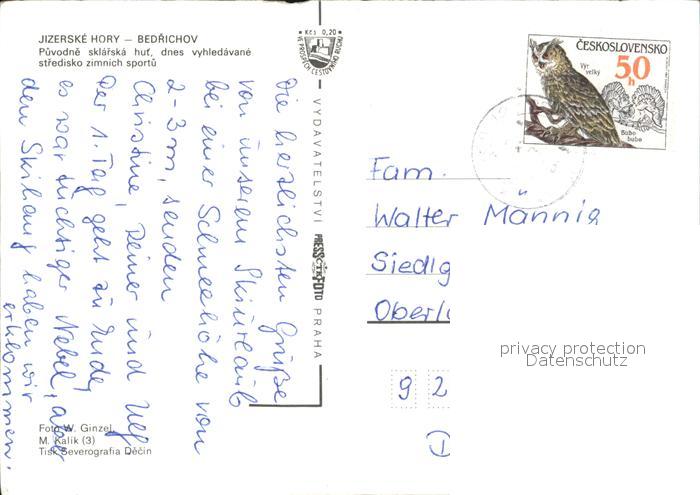 JIZERSKÉ HORY — BEDŘICHOV
Původně sklářská huť, dnes vyhledávané
středisko zimních sportů
Die herzlichsten Grüße
von unserem Skiurlaub
bei einer Schneehöhe von
2-3 m, senden
Christine, Reiner und Ulf
Der 1. Tag geht zu Ende,
es war tüchtiger Nebel, aber
den Skihang haben wir
erklommen.
Foto W. Ginzel,
M. Kalík (3)
Tisk Severografia Děčín
Kčs 0,20
VE PROSPĚCH CESTOVNÍHO RUCHU
VYDAVATELSTVÍ PRESSFOTO PRAHA
ČESKOSLOVENSKO
50 h
Výr velký
Bubo bubo
Fam.
Walter Männig
Siedlg
Oberl
9 2
(D
privacy protection
Datenschutz